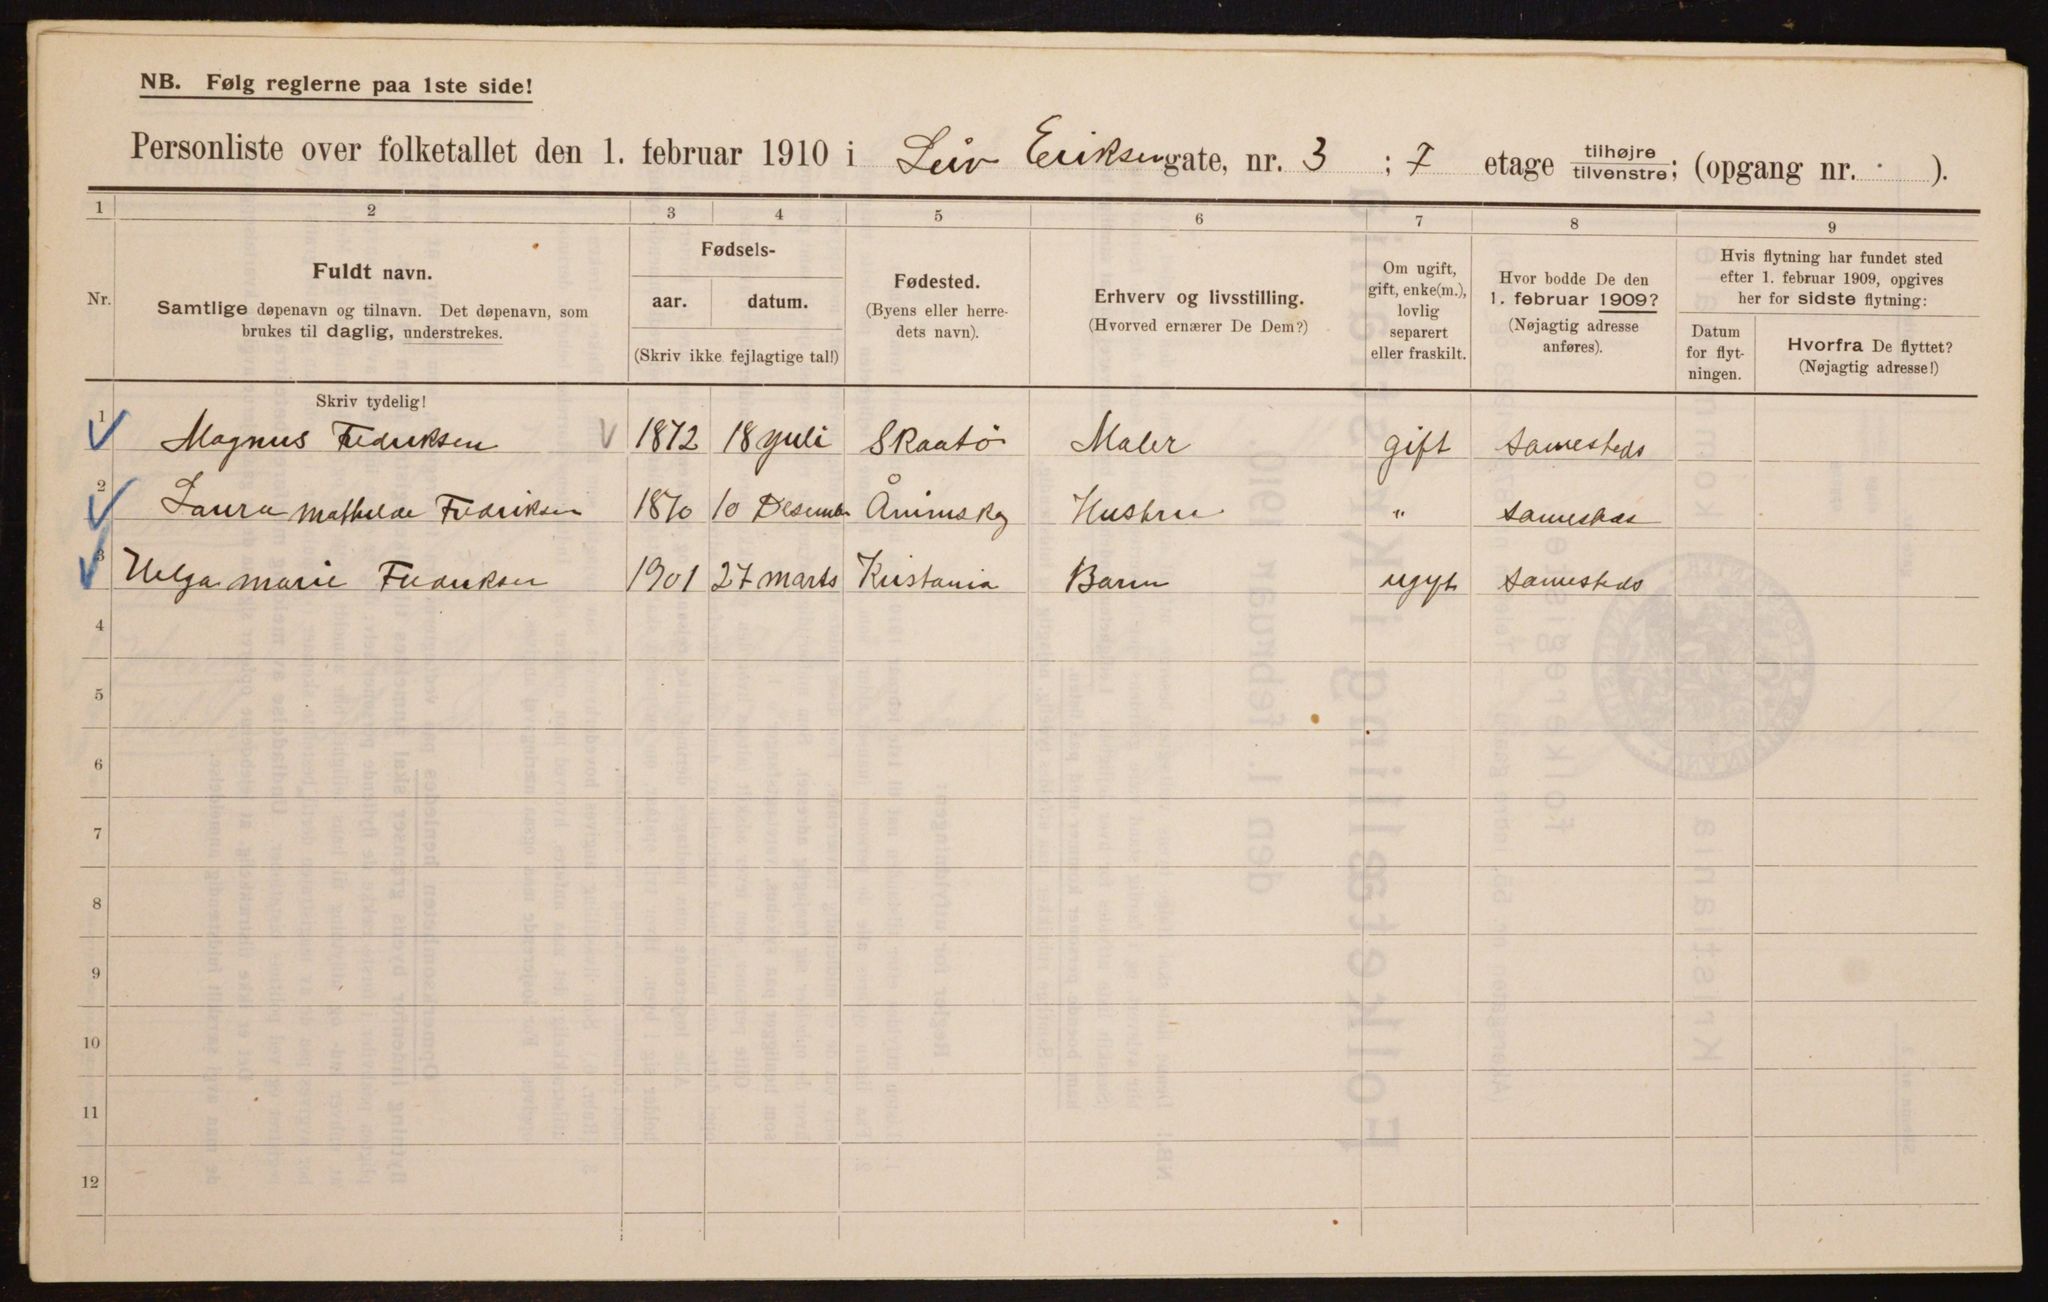 NB. Følg reglerne paa 1ste side!
Personliste over folketallet den 1. februar 1910 i Leiv Eriksengate, nr. 3 ; 7 etage tilhøjre tilvenstre; (opgang nr. ).
1 2 3 4 5 6 7 8 9
Nr.
Fuldt navn.
Samtlige døpenavn og tilnavn. Det døpenavn, som
brukes til daglig, understrekes.
Fødsels-
aar. datum.
(Skriv ikke fejlagtige tal!)
Fødested.
(Byens eller herre-
dets navn).
Erhverv og livsstilling.
(Hvorved ernærer De Dem?)
Om ugift,
gift, enke(m.),
lovlig
separert
eller fraskilt.
Hvor bodde De den
1. februar 1909?
(Nøjagtig adresse
anføres).
Hvis flytning har fundet sted
efter 1. februar 1909, opgives
her for sidste flytning:
Datum
for flyt-
ningen.
Hvorfra De flyttet?
(Nøjagtig adresse!)
Skriv tydelig!
1 Magnus Fredriksen 1872 18 juli Skaatö Maler gift Samesteds
2 Laura Mathilde Fredriksen 1870 10 Desember Hustru " Samesteds
3 Helga Marie Fredriksen 1901 27 Marts Kristania Barn Samesteds
4
5
6
7
8
9
10
11
12